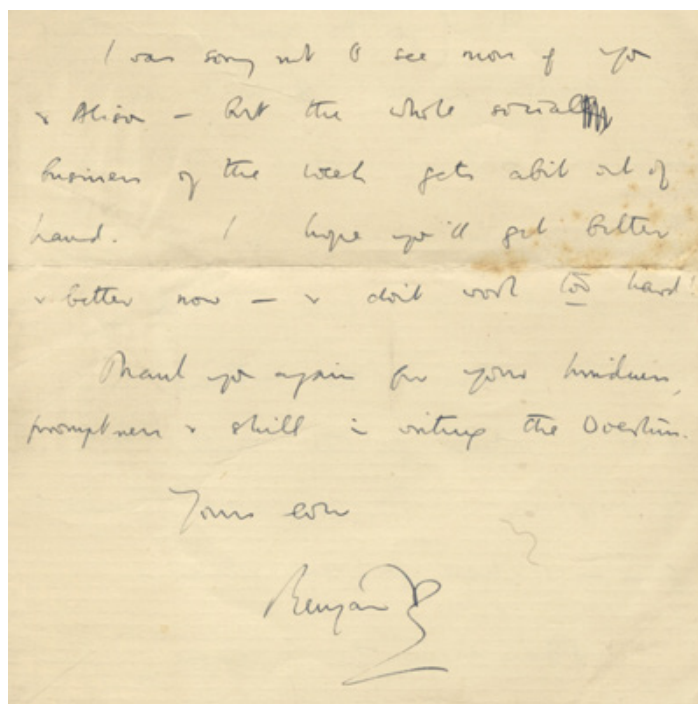 I was sorry not to see more of you
& Alison – but the whole social
business of the week gets a bit out of
hand. I hope you'll get better
& better now – & don't work too hard!
Thank you again for your kindness,
promptness & skill in writing the Overture.
Yours ever
Benjamin B